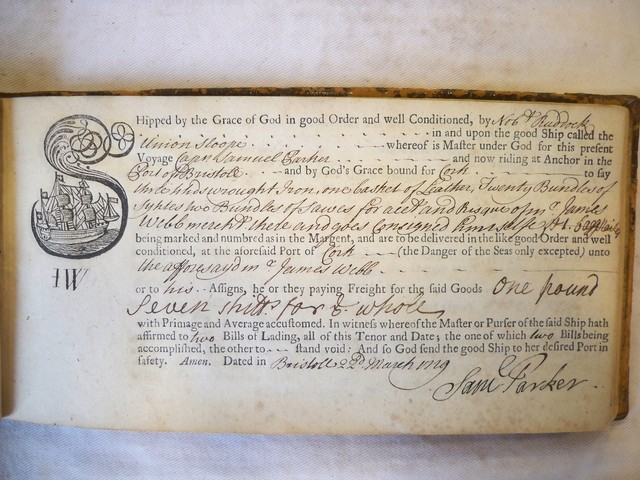 SHipped by the Grace of God in good Order and well Conditioned, by Nob.t Ruddock
in and upon the good Ship called the
Union Sloope whereof is Master under God for this present
Voyage Capn Samuel Parker and now riding at Anchor in the
Port of Bristoll and by God's Grace bound for Cork to say
three hhds wrought Iron, one basket of Leather, Twenty Bundles of
two Bundles of Sawes for acct and Risque of mr James
Webb mercht there and goes Consigned himselfe
being marked and numbred as in the Margent, and are to be delivered in the like good Order and well
conditioned, at the aforesaid Port of Cork (the Danger of the Seas only excepted) unto
the aforesayd mr James Webb
IW
or to his Assigns, he or they paying Freight for the said Goods One pound
Seven shills for ye whole
with Primage and Average accustomed. In witness whereof the Master or Purser of the said Ship hath
affirmed to two Bills of Lading, all of this Tenor and Date; the one of which two Bills being
accomplished, the other to stand void: And so God send the good Ship to her desired Port in
safety. Amen. Dated in Bristoll 22d March
Saml Parker